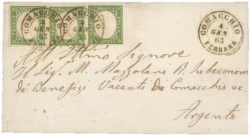 COMACCHIO
COMACCHIO
4
GEN
63
FERRARA
All'Ill.mo Signore
Il Sig. M. Mazzolani R. Subeconomo
di Benefizi Vacanti di Comacchio se
Argenta